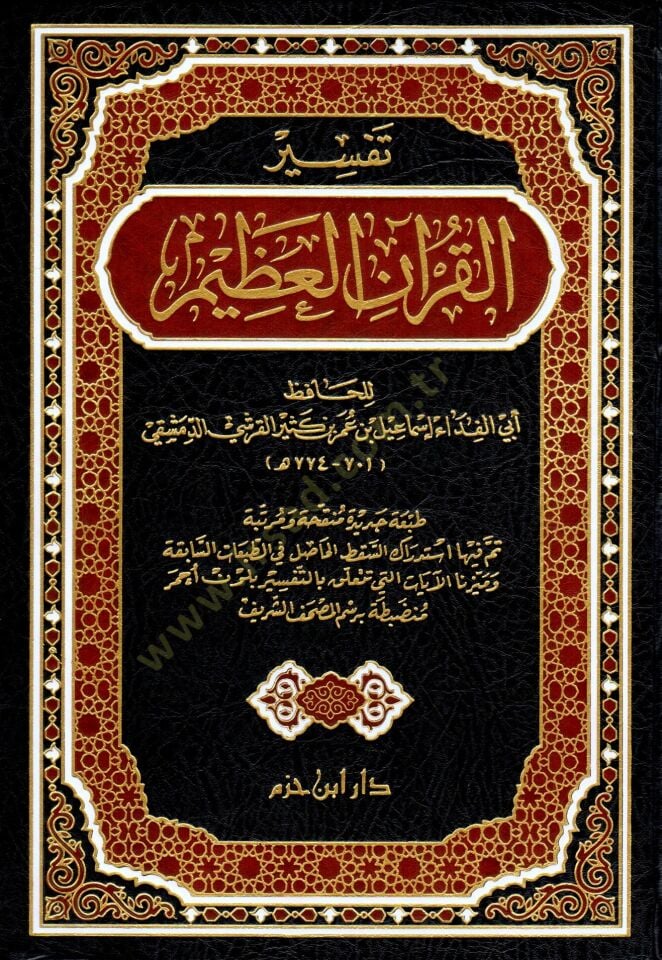 تَفسِير
القُرآنِ العَظِيمِ
لِلحَافِظ
أبي الفِدَاء إسْمَاعِيل بن عُمَر بن كَثير القرشي الدِّمَشقِي
(٧٠١ - ٧٧٤ هـ)
طبْعَة جَديدة مُنقحَة وَمُرتبَة
تمّ فيها استدراك السَّقط الحَاصل في الطّبعَات السَّابقة
وميّزنا الآيات التي تتعلّق بالتّفسير بلون أحمَر
مُنضبِطَة برسْم المصْحَف الشريف
دار ابن حزم